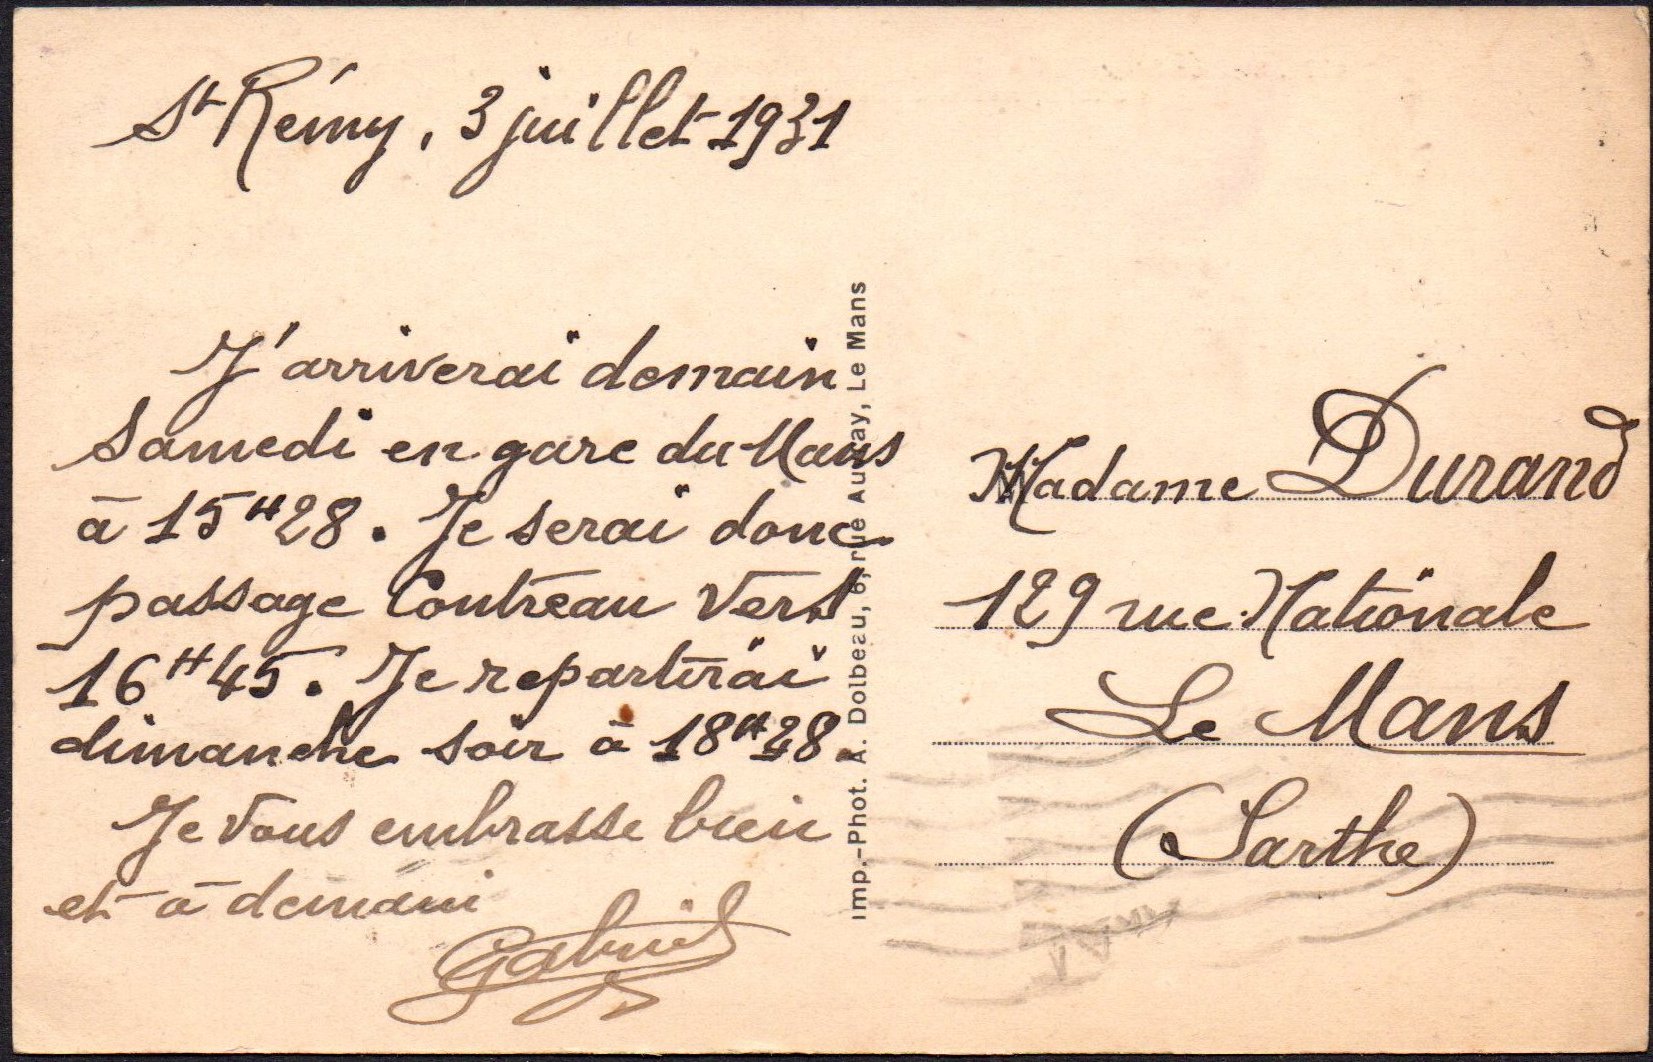 St Rémy, 3 juillet 1931
J'arriverai demain
Samedi en gare du Mans
à 15H28. Je serai donc
passage Contreau vers
16H45. Je repartirai
dimanche soir à 18H28.
Je vous embrasse bien
et à demain
Gabriel
Imp.-Phot. A. Dolbeau, 6, rue Auvray, Le Mans
Madame Durand
129 rue Nationale
Le Mans
(Sarthe)